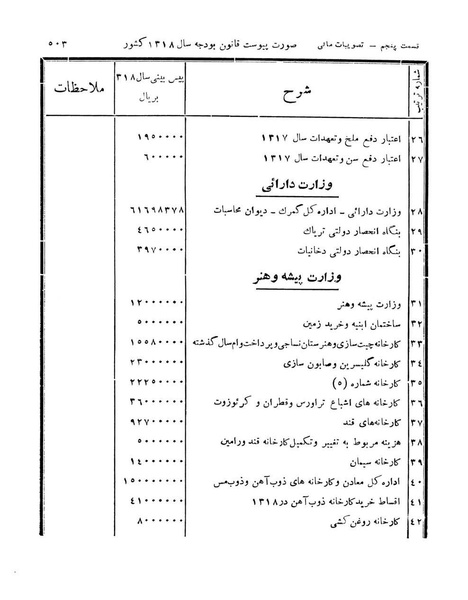 قسمت پنجم — تصویبات مالی صورت پیوست قانون بودجه سال ۱۳۱۸ کشور ۵۰۳
شماره ترتیب شرح پیش بینی سال ۳۱۸ بریال ملاحظات
۲۶ اعتبار دفع ملخ و تعهدات سال ۱۳۱۷ ۱۹۵۰۰۰۰
۲۷ اعتبار دفع سن و تعهدات سال ۱۳۱۷ ۶۰۰۰۰۰
وزارت دارائی
۲۸ وزارت دارائی - اداره کل گمرك - دیوان محاسبات ۶۱۶۹۸۳۷۸
۲۹ بنگاه انحصار دولتی تریاك ۴۶۵۰۰۰۰
۳۰ بنگاه انحصار دولتی دخانیات ۳۹۷۰۰۰۰
وزارت پیشه و هنر
۳۱ وزارت پیشه وهنر ۱۲۰۰۰۰۰۰
۳۲ ساختمان ابنیه و خرید زمین ۵۰۰۰۰۰۰
۳۳ کارخانه چیت سازی وهنرستان نساجی و پرداخت وام سال گذشته ۱۵۵۸۰۰۰۰
۳۴ کارخانه گلیسرین وصابون سازی ۲۳۰۰۰۰۰۰
۳۵ کارخانه شماره (۵) ۲۲۲۵۰۰۰۰
۳۶ کارخانه های اشباع تراورس وقطران و کرئوزوت ۳۶۰۰۰۰۰
۳۷ کارخانه‌های قند ۹۲۷۰۰۰۰۰
۳۸ هزینه مربوط به تغییر و تکمیل کارخانه قند ورامین ۵۰۰۰۰۰۰
۳۹ کارخانه سیمان ۱۴۰۰۰۰۰۰
۴۰ اداره کل معادن و کارخانه های ذوب آهن وذوب مس ۱۵۰۰۰۰۰۰۰
۴۱ اقساط خرید کارخانه ذوب آهن در ۱۳۱۸ ۴۱۰۰۰۰۰۰
۴۲ کارخانه روغن کشی ۸۰۰۰۰۰۰